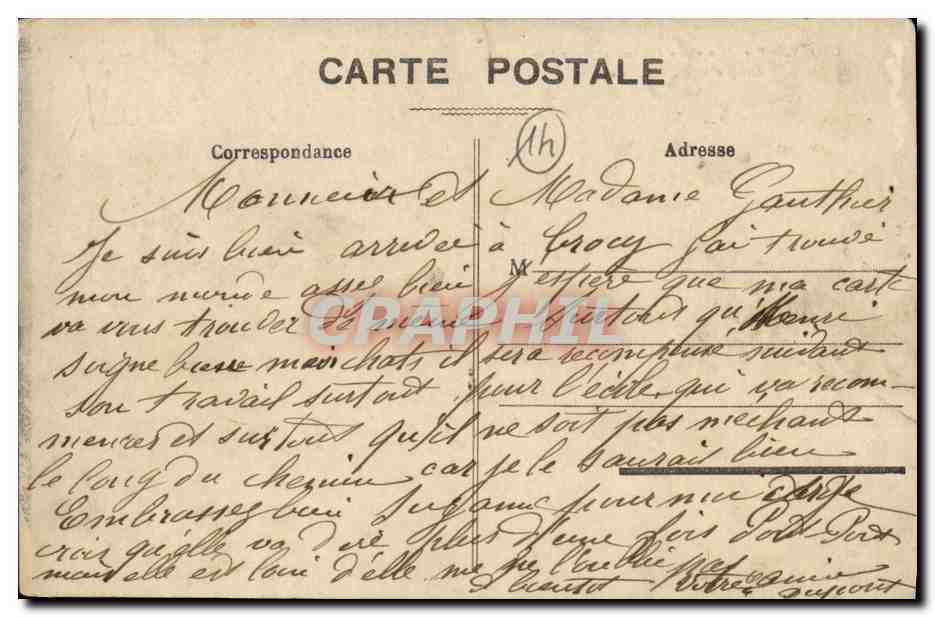 CARTE POSTALE
1h
Correspondance
Adresse
Monsieur et Madame Gauthier
Je suis bien arrivée à Crocy j'ai trouvé
M
mon monde assez bien j'espère que ma carte
va vous trouver de même surtout qu'Henri
soigne bien mon chat il sera recompensé suivant
son travail surtout pour l'école qui va recom-
mencer et surtout qu'il ne soit pas mechant
le long du chemin car je le saurais bien
Embrassez bien Suzanne pour moi je
crois qu'elle va dire plus d'une fois
mais elle est loin d'elle ne l'oublie pas
a bientot votre amie
CPAPHIL